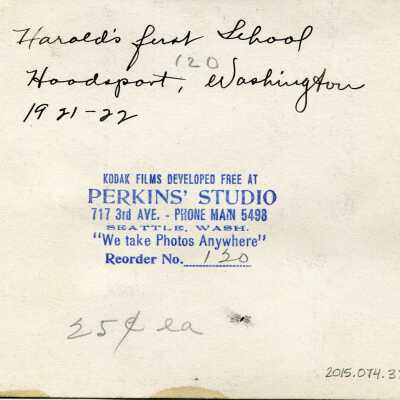 Harold's first School
120
Hoodsport, Washington
1921-22
KODAK FILMS DEVELOPED FREE AT
PERKINS' STUDIO
717 3rd AVE. - PHONE MAIN 5498
SEATTLE, WASH.
"We take Photos Anywhere"
Reorder No. 120
25¢ ea
2015.074.37